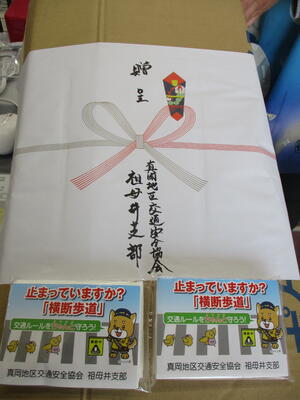 贈呈
真岡地区交通安全協会
祖母井支部
止まっていますか?
「横断歩道」
交通ルールをちゃんと守ろう!
真岡地区交通安全協会 祖母井支部
止まっていますか?
「横断歩道」
交通ルールをちゃんと守ろう!
真岡地区交通安全協会 祖母井支部